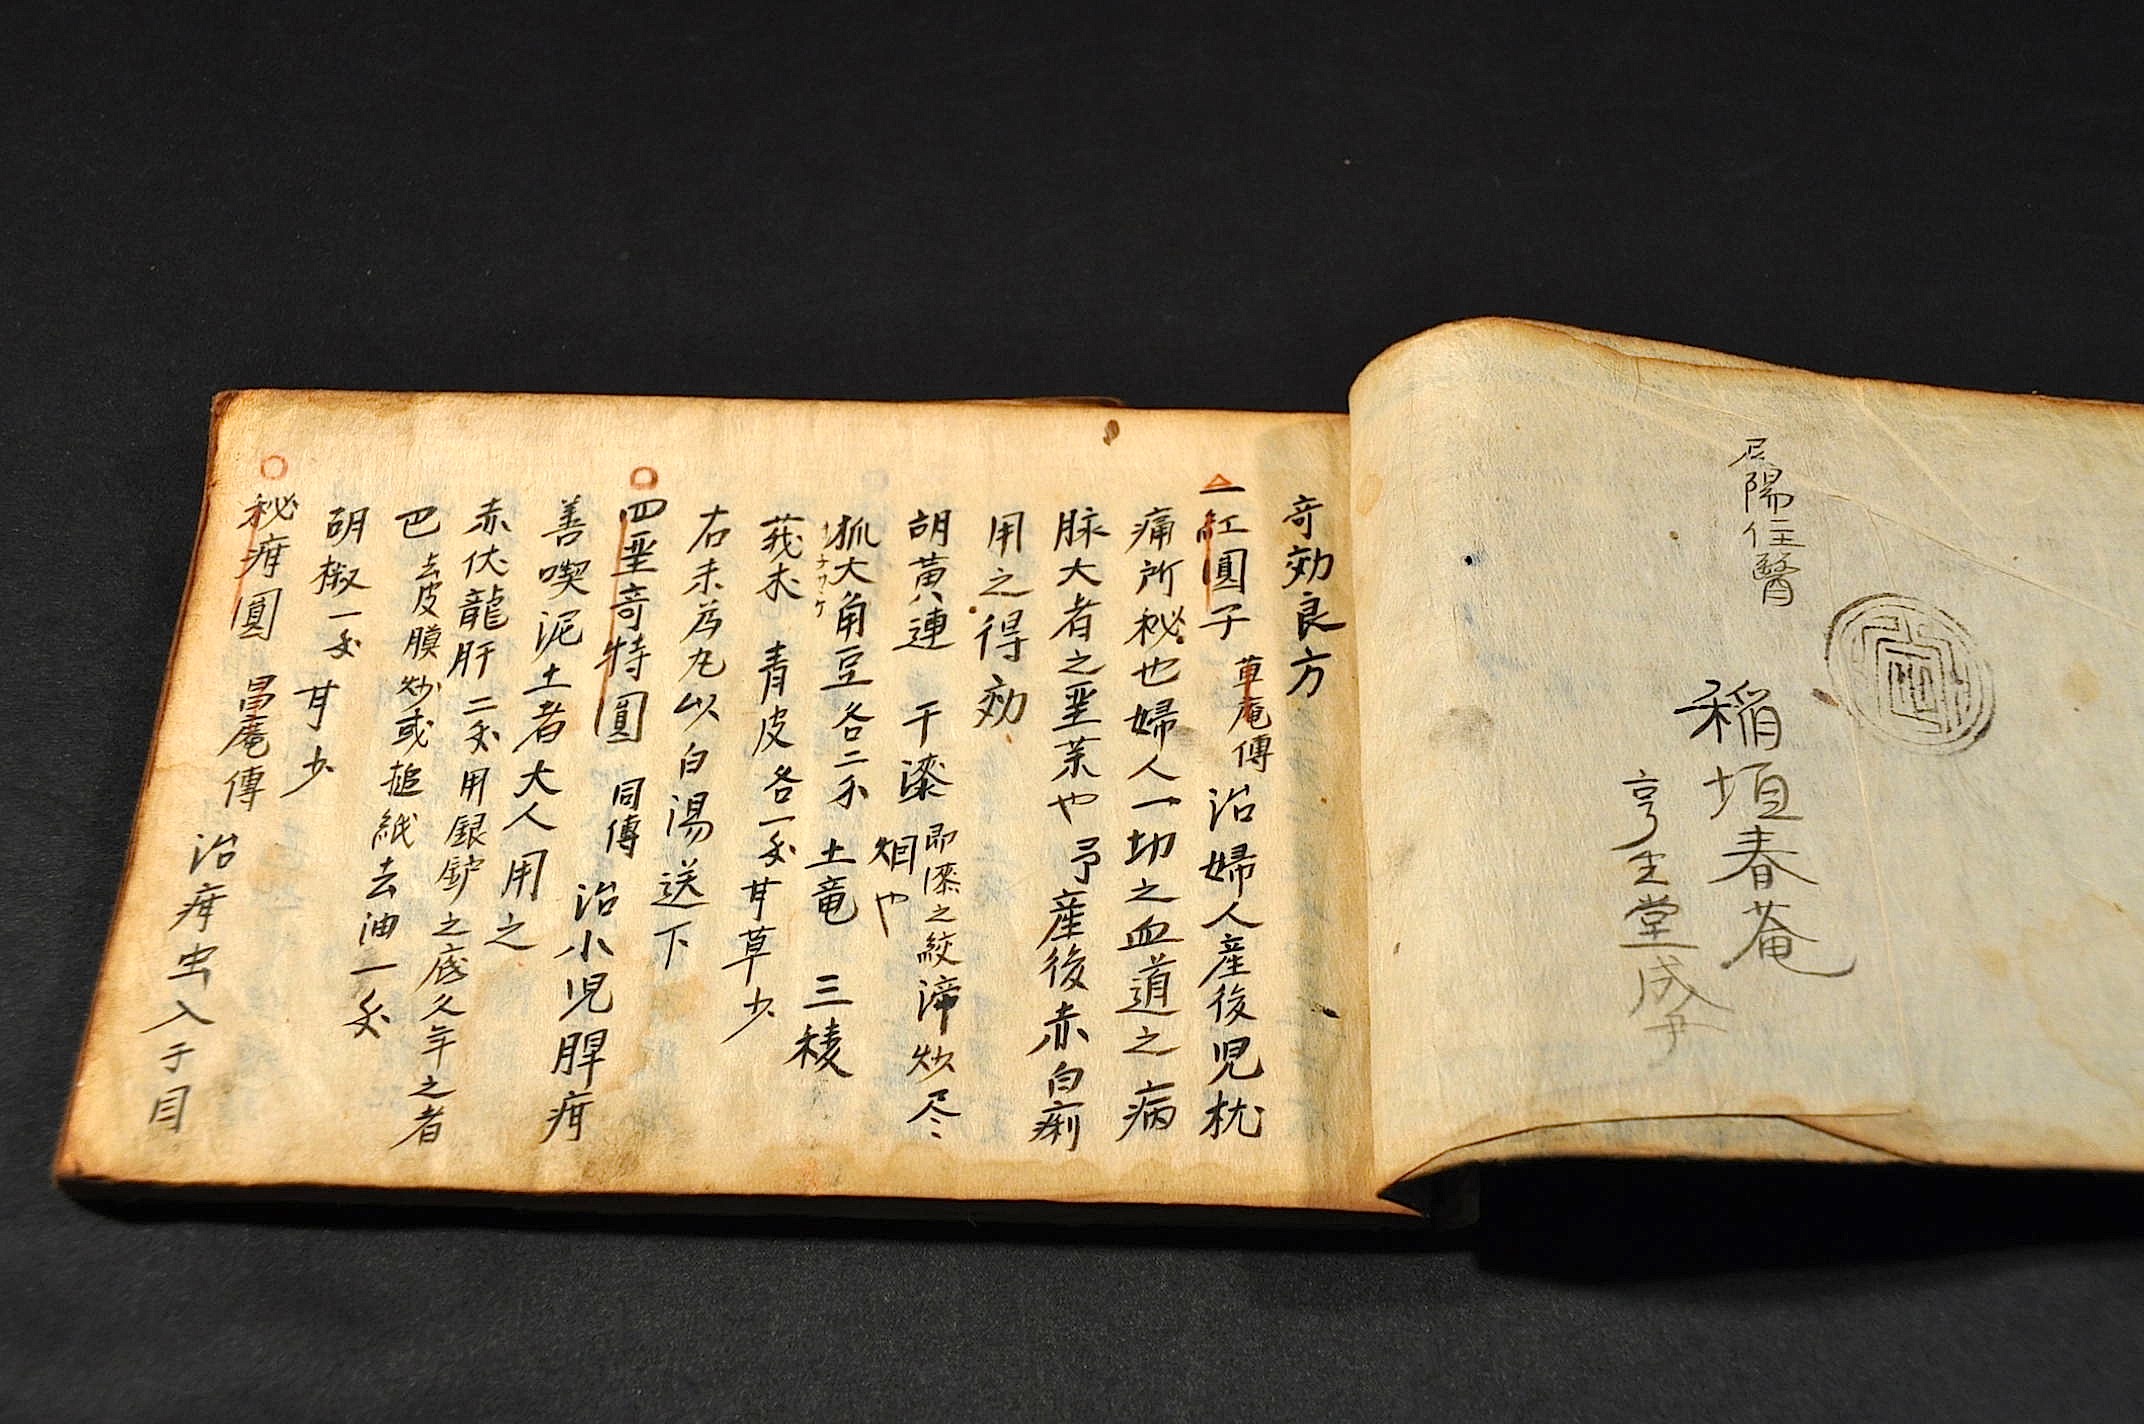 尾陽住醫
稲垣春菴
亨生堂成尹
奇効良方
一紅圓子 草庵傳 治婦人産後児枕
痛所秘也婦人一切之血道之病
脉大者之聖薬也予産後赤白痢
用之得効
胡黄連 干漆 即漆之絞滓炒尽
烟也
狐大角豆各二分 土竜 三稜
莪朮 青皮各一匁甘草少
右末為丸以白湯送下
四聖奇特圓 同傳 治小児脾疳
善喫泥土者大人用之
赤伏龍肝二匁用銀鈩之底久年之者
巴去皮膜炒或搥紙去油一匁
胡椒一匁甘少
秘疳圓 昌庵傳 治疳虫入于目